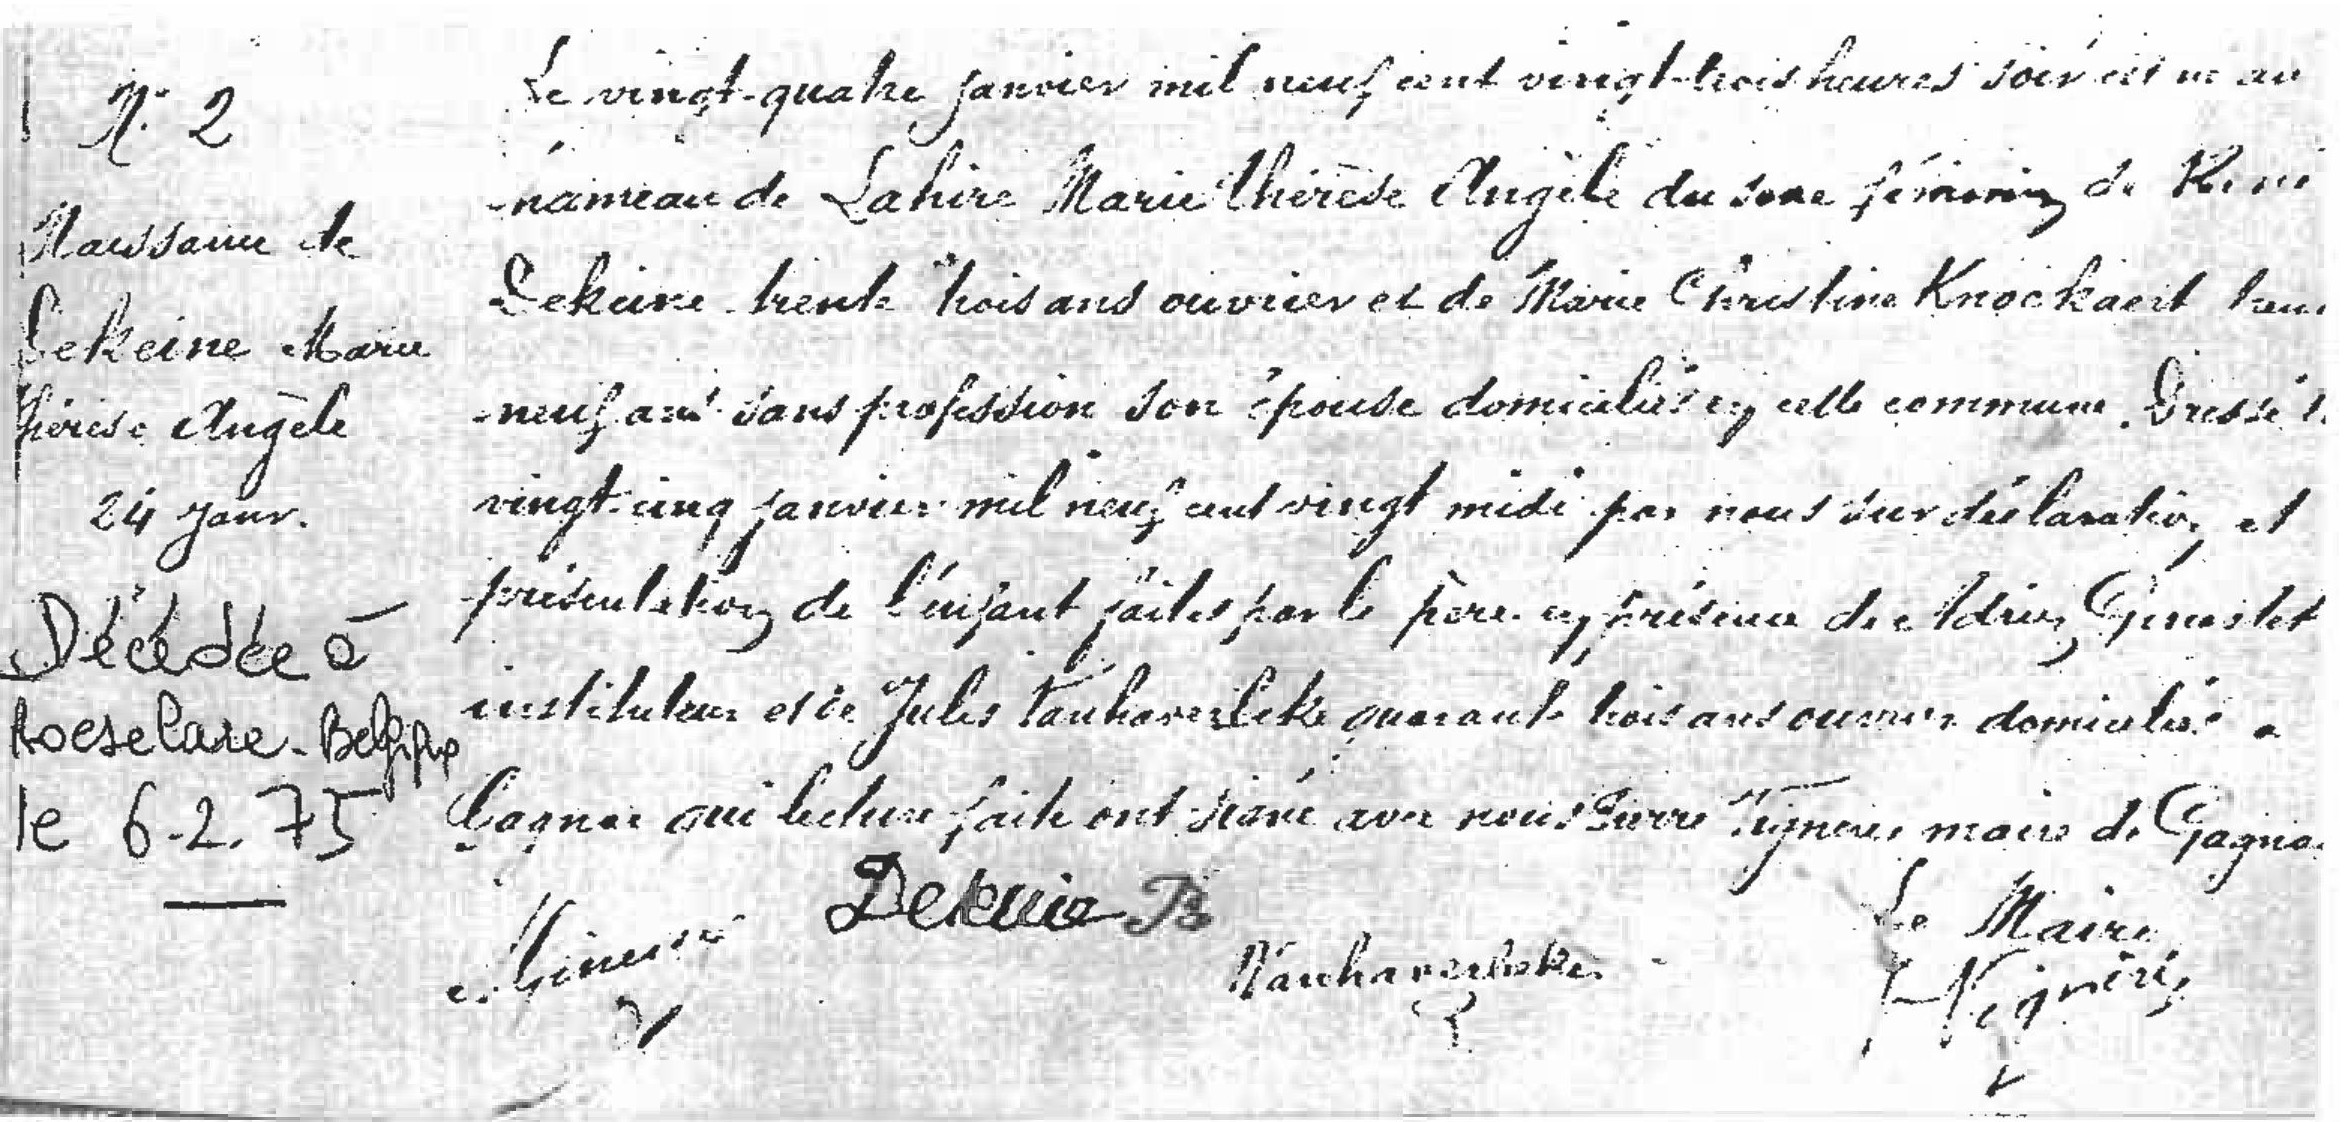 N° 2
Naissance de
Dekeine Marie
Thérèse Angèle
24 Janv.
Décédée à
Roeselare - Belgique
le 6.2.75
Le vingt-quatre janvier mil neuf cent vingt trois heures soir est né au
hameau de Lahire Marie Thérèse Angèle du sexe féminin de René
Dekeine trente trois ans ouvrier et de Marie Christine Knockaert
neuf ans sans profession son épouse domiciliés en cette commune. Dressé le
vingt-cinq janvier mil neuf cent vingt midi par nous sur déclaration et
présentation de l'enfant faites par le père en présence de Adrien Ginestet
instituteur et de Jules Vanhaverbeke quarante trois ans ouvrier domiciliés à
Gagnac qui lecture faite ont signé avec nous Pierre maire de Gagnac
Dekeine R
Vanhaverbeke
Le Maire